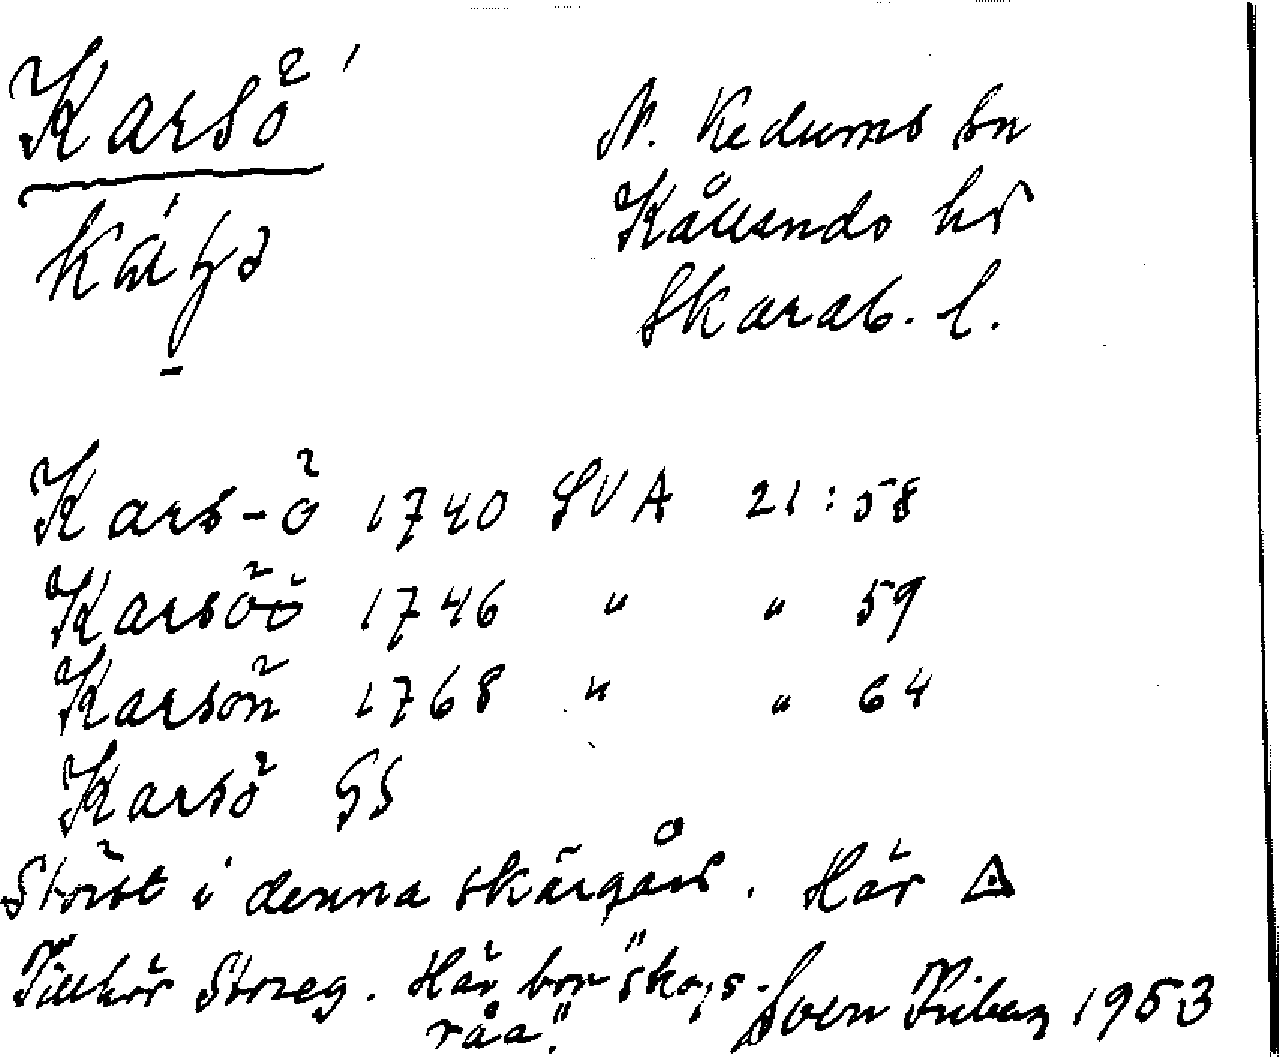 Karsö
N. Kedums sn
Kållands hd
Skarab. l.
Kars-ö 1740 LVA 21:58
Karsöö 1746 " " 59
Karsön 1768 " " 64
Karsö GS
Störst i denna skärgård. Här
Tillhör Storeg. Här bor "skogs-
råa."
Sven 1953